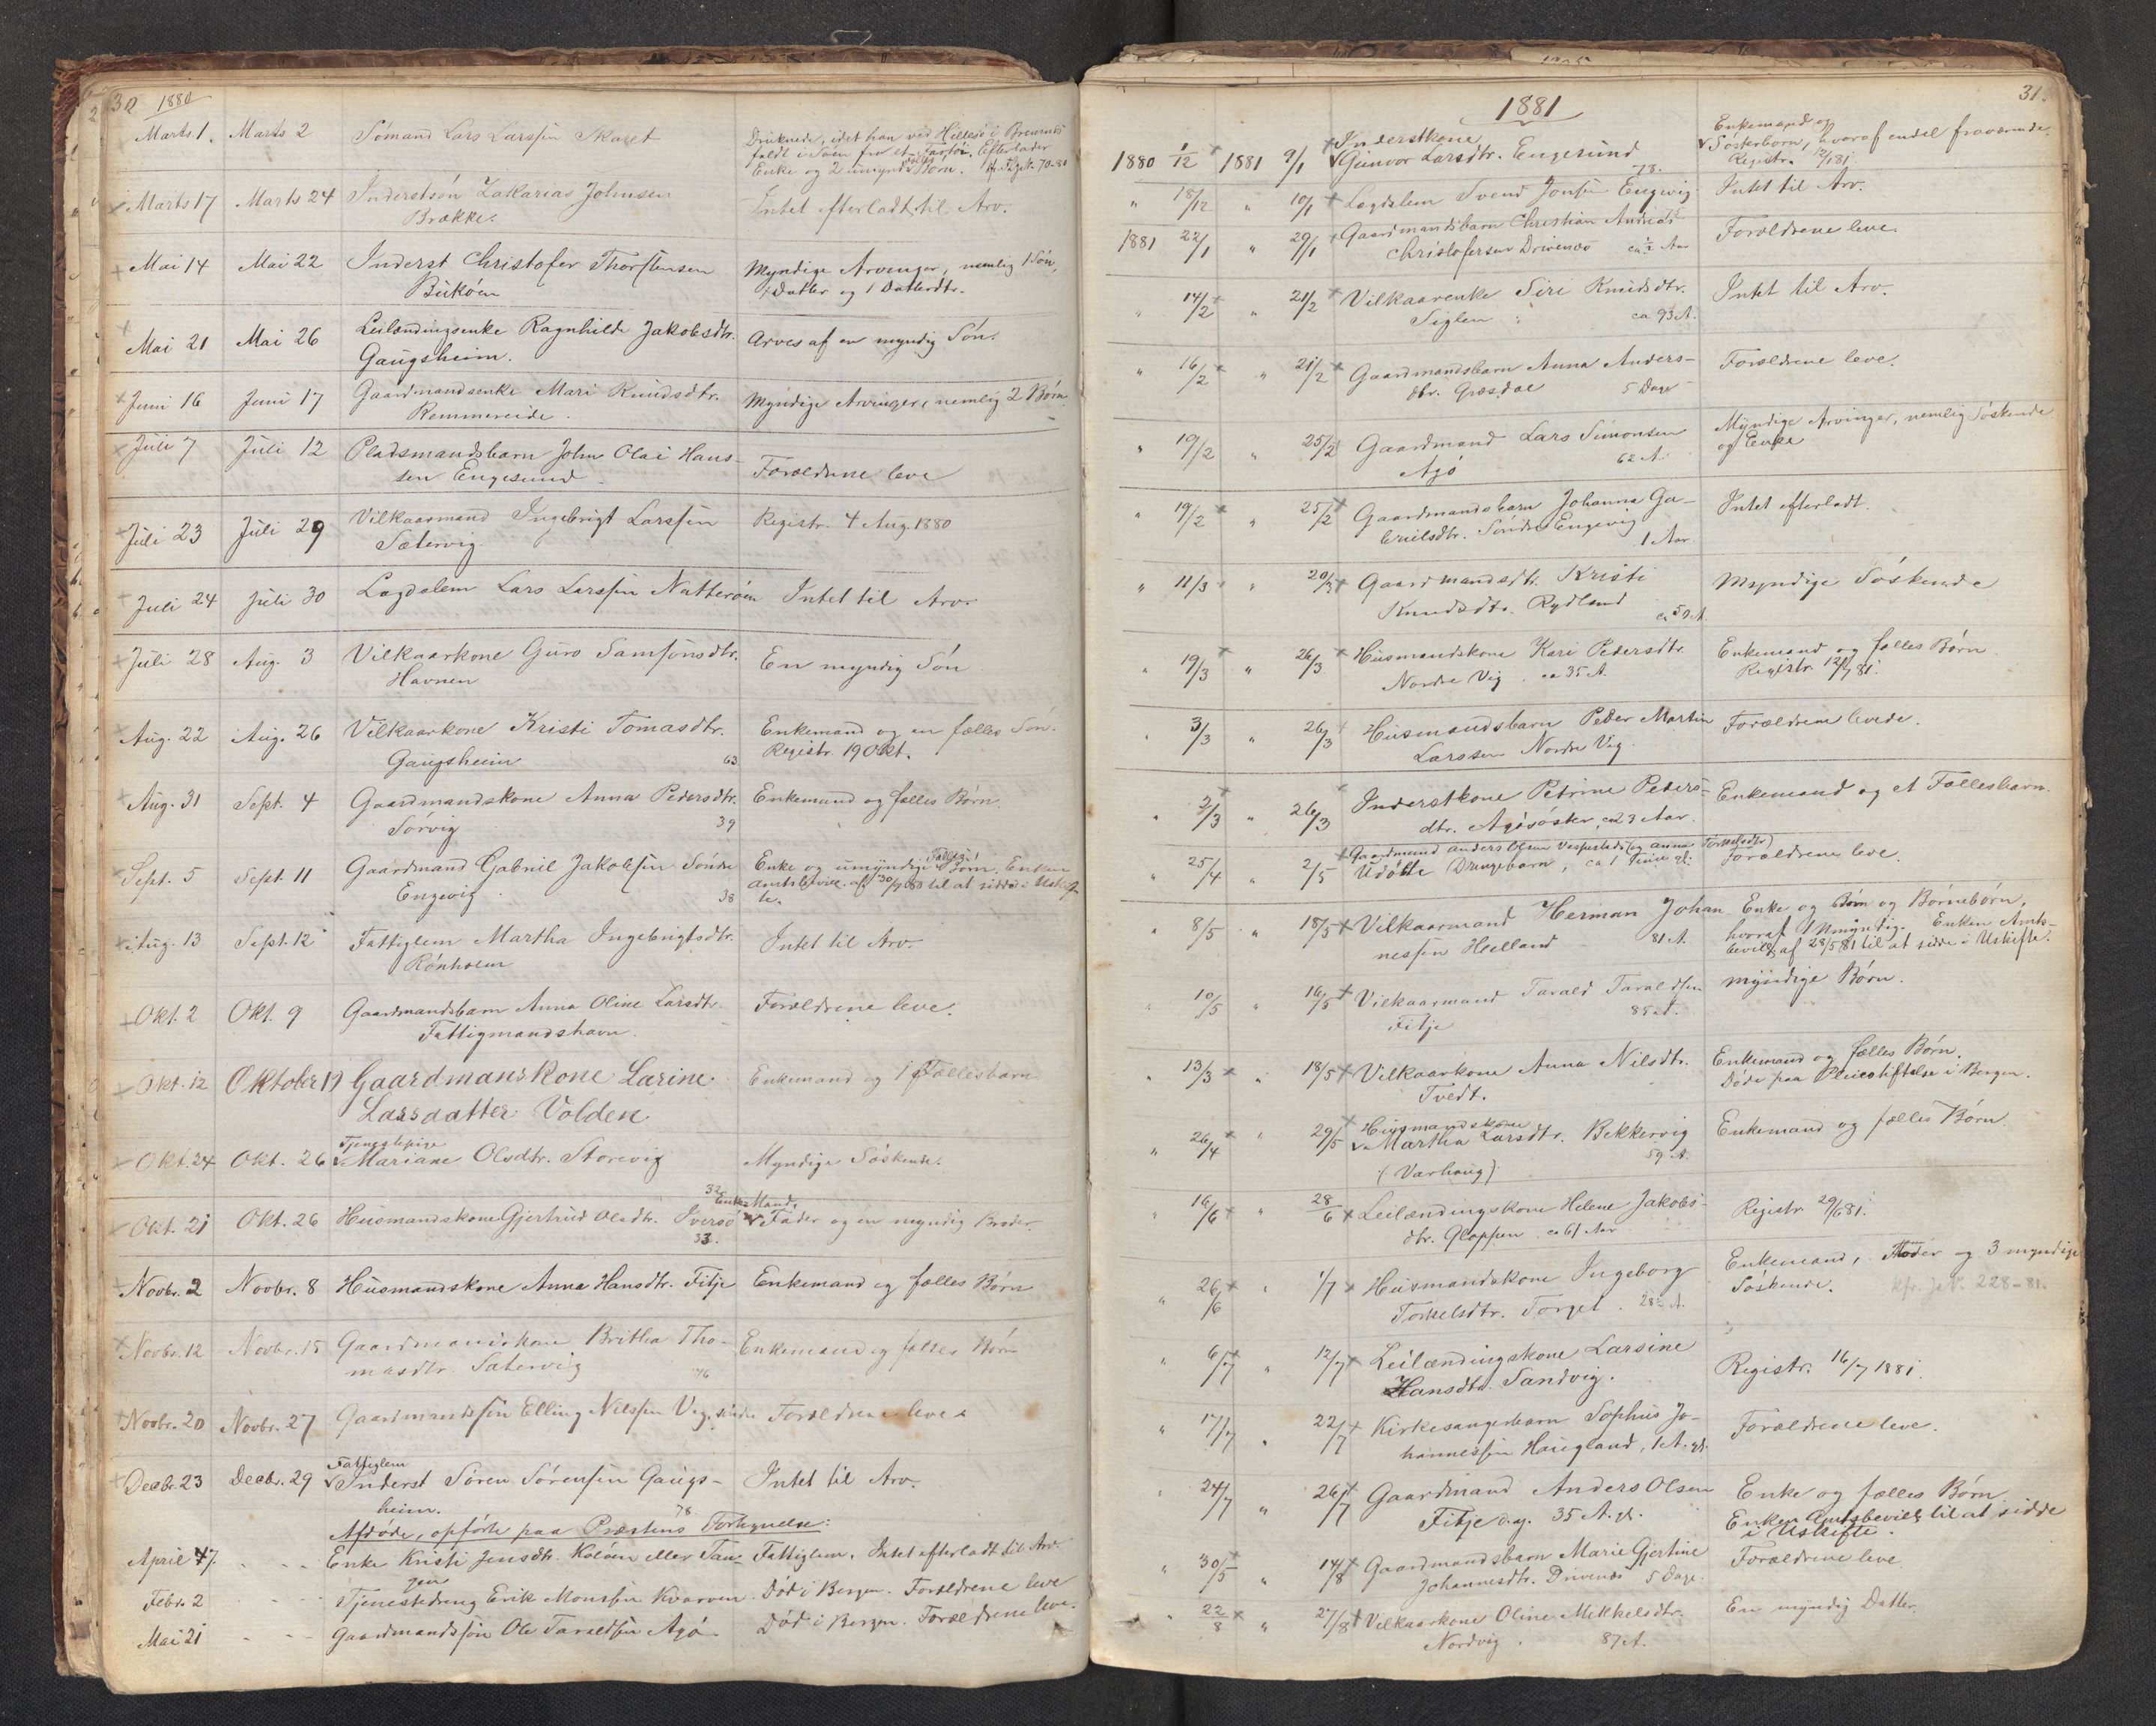 30 1880
Marts 1. Marts 2 Sömand Lars Larssen Skaret Druknede, idet han ved Hillesö i Bremnes
faldt i Söen fra et Fartöi. Efterlader
Enke og 2 umynd. Börn.
Marts 17 Marts 24 Inderstsön Zakarias Johnsen Intet efterladt til Arv.
Brække.
Mai 14 Mai 22 Inderst Christofer Thorstensen Myndige Arvinger, nemlig 1 Sön,
Buköen 1 Datter og 1 Datterdtr.
Mai 21 Mai 26 Leilændingsenke Ragnhilde Jakobsdtr. Arves af en myndig Sön.
Gaugsheim.
Juni 16 Juni 17 Gaardmandsenke Mari Knudsdtr. Myndige Arvinger, nemlig 2 Börn
Remmereide.
Juli 7 Juli 12 Pladsmandsbarn John Olai Hans-
sen Engesund Forældrene leve
Juli 23 Juli 29 Vilkaarmand Ingebrigt Larssen Registr. 4 Aug. 1880
Sætervig
Juli 24 Juli 30 Lægdslem Lars Larssen Natteröen Intet til Arv.
Juli 28 Aug. 3 Vilkaarkone Guro Samsonsdtr. En myndig Sön
Havnen
Aug. 22 Aug. 26 Vilkaarkone Kristi Tomasdtr. Enkemand og en fælles Sön.
Gaugsheim 63 Registr. 19 Okt.
Aug. 31 Sept. 4 Gaardmandskone Anna Pedersdtr. Enkemand og fælles Börn.
Sörvig 39
Sept. 5 Sept. 11 Gaardmand Gabriel Jakobsen Söndre Enke og umyndige Fælles Börn. Enken
Engevig 38 Amtsbevill. af 30/9 80 til at sidde i Uskif-
te.
Aug. 13 Sept. 12 Fattiglem Martha Ingebrigtsdtr. Intet til Arv
Rönholm
Okt. 2 Okt. 9 Gaardmandsbarn Anna Oline Larsdtr. Forældrene leve.
Fattigmandshavn.
Okt. 12 Oktober 19 Gaardmanskone Larine Enkemand og 1 Fællesbarn
Larsdatter Volden
Okt. 24 Okt. 26 Tjenestepige Mariane Olsdtr. Storevig Myndige Söskende.
32
Okt. 21 Okt. 26 Husmandskone Gjertrud Olsdtr. Iversö Enke-Mand, Fader og en myndig Broder.
33.
Novbr. 2 Novbr. 8 Husmandskone Anna Hansdtr. Fitje Enkemand og fælles Börn
Novbr. 12 Novbr. 15 Gaardmandskone Britha Tho- Enkemand og fælles Börn
masdtr Sætervig 46
Novbr. 20 Novbr. 27 Gaardmandssön Elling Nilssen Vig, söndre Forældrene leve
Decbr. 23 Decbr. 29 Fattiglem Inderst Sören Sörensen Gaugs- Intet til Arv.
heim. 78
Afdöde, opförte paa Præstens Fortegnelse:
April 7. Enke Kristi Jensdtr. Kolöen eller Tan- Fattiglem. Intet efterladt til Arv.
gen
Febr. 2 Tjenestedreng Erik Monssen Kvarven Död i Bergen. Forældrene leve
Mai 21 Gaardmandssön Ole Taraldsen Agö Död i Bergen. Forældrene leve.
31.
1881
1880 1/12 1881 9/1 Inderstkone Enkemand og
Gunvor Larsdtr. Engesund Söskerbörn, hvoraf endel fraværende.
78. Registr. 12/1 81.
" 18/12 " 10/1 Lægdslem Svend Jonsen Engevig Intet til Arv.
1881 22/1 " 29/1 Gaardmandsbarn Christian Andreas Forældrene leve.
Christofersen Drivenæs ca ½ Aar
" 14/2 " 21/2 Vilkaarenke Siri Knudsdtr. Intet til Arv.
Siglen ca 93 A.
" 16/2 " 21/2 Gaardmandsbarn Anna Anders- Forældrene leve.
dtr. Græsdal 5 Dage
" 19/2 " 25/2 Gaardmand Lars Simonsen Myndige Arvinger, nemlig Söskende
Agö 62 A. og Enke
" 19/2 " 25/2 Gaardmandsbarn Johanna Ga- Intet efterladt.
brielsdtr. Söndre Engevig 1 Aar
" 11/3 " 20/3 Gaardmandsdtr. Kristi Myndige Söskende
Knudsdtr. Rydland ca 50 A.
" 19/3 " 26/3 Husmandskone Kari Pedersdtr. Enkemand og fælles Börn
Nordre Vig ca 35 A. Registr. 12/7 81.
" 3/3 " 26/3 Husmandsbarn Peder Martin Forældrene levde.
Larssen Nordre Vig.
" 2/3 " 26/3 Inderstkone Petrine Peders- Enkemand og et Fællesbarn.
dtr. Agösoster, ca 23 Aar.
" 25/4 " 2/5 Gaardmand Anders Olsen Vespestads (og Anna Torkelsdtr)
Udöbte Drengebarn, ca 1 Time gl. Forældrene leve.
" 8/5 " 18/5 Vilkaarmand Herman Johan- Enke og Börn og Börnebörn,
nessen Hælland 81 A. hvoraf 1 Umyndig. Enken Amts-
bevill. af 28/5 81 til at sidde i Uskifte.
" 10/5 " 16/5 Vilkaarmand Tarald Taraldsen myndige Börn.
Fitje 85 A.
" 13/3 " 18/5 Vilkaarkone Anna Nilsdtr. Enkemand og fælles Börn.
Tvedt. Döde paa Pleiestiftelse i Bergen.
" 26/4 " 29/5 Husmandskone Enkemand og fælles Börn
Martha Larsdtr. Bekkervig 59 A.
(Varhaug)
" 16/6 " 28/6 Leilændingskone Helene Jakobs- Registr. 29/6 81.
dtr. Gloppen ca 61 Aar
" 26/6 " 1/7 Husmandskone Ingeborg Enkemand, Moder og 3 myndige
Torkelsdtr. Torget. 28½ A. Söskende. kfr. JN. 228-81.
" 6/7 " 12/7 Leilændingskone Larsine Registr. 16/7 1881.
Hansdtr. Sandvig.
" 17/7 " 22/7 Kirkesangerbarn Sophus Jo- Forældrene leve.
hannessen Haugland, 1 A. gl.
" 24/7 " 26/7 Gaardmand Anders Olsen Enke og fælles Börn
Fitje d.y. 35 A. gl. Enken Amtsbevill. til at sidde
i Uskifte.
" 30/5 " 14/8 Gaardmandsbarn Marie Gjertine Forældrene leve
Johannesdtr. Drivenæs 5 Dage.
" 22/8 " 27/8 Vilkaarkone Oline Mikkelsdtr. En myndig Datter.
Nordvig 87 A.